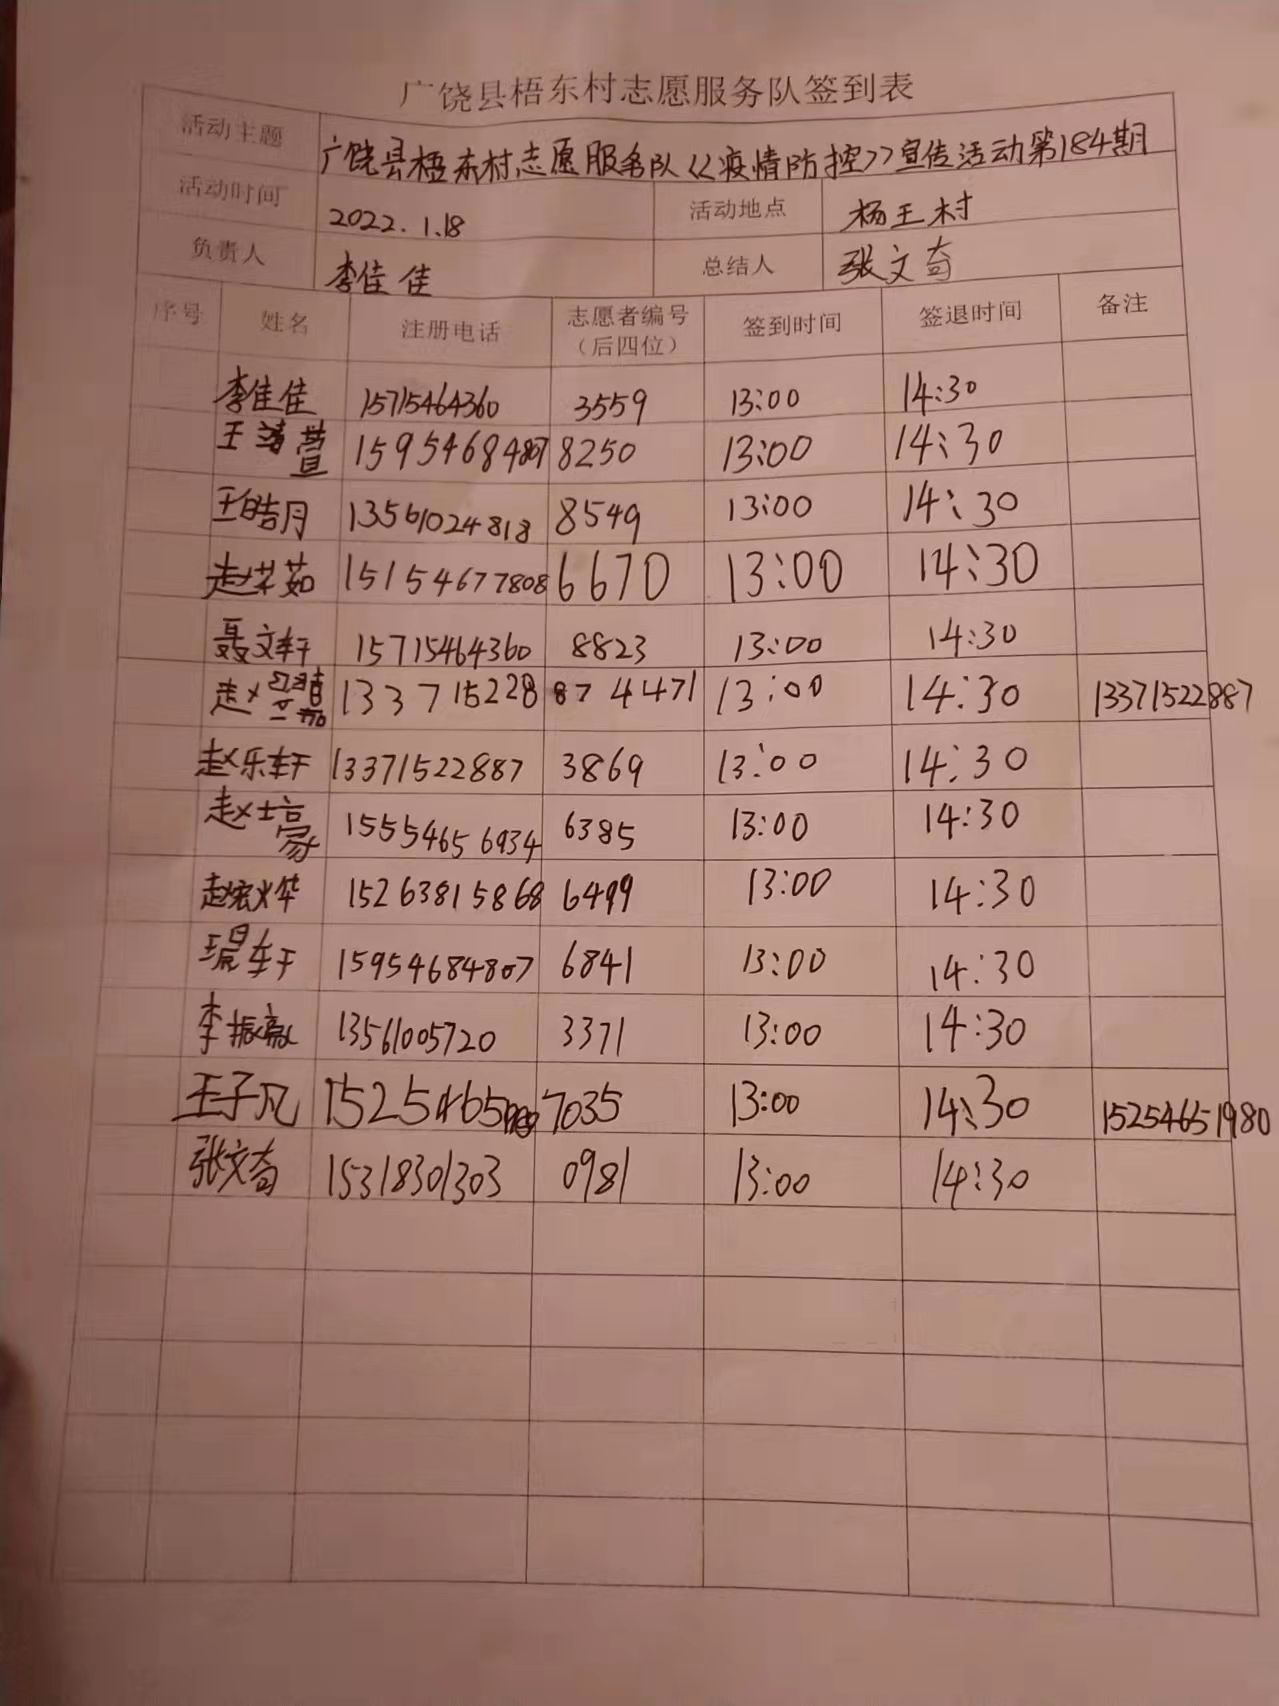 广饶县梧东村志愿服务队签到表
活动主题 广饶县梧东村志愿服务队《疫情防控》宣传活动第184期
活动时间 2022.1.18 活动地点 杨王村
负责人 李佳佳 总结人 张文奇
序号 姓名 注册电话 志愿者编号（后四位） 签到时间 签退时间 备注
李佳佳 15715464360 3559 13:00 14:30
王靖萱 15954684807 8250 13:00 14:30
王皓月 13561024818 8549 13:00 14:30
赵荣茹 15154677808 6670 13:00 14:30
聂文轩 15715464360 8823 13:00 14:30
赵 13371522887 4471 13:00 14:30 13371522887
赵乐轩 13371522887 3869 13:00 14:30
赵士豪 15554656934 6385 13:00 14:30
赵宏烨 15263815868 6499 13:00 14:30
王晨轩 15954684807 6841 13:00 14:30
李振豪 13561005720 3371 13:00 14:30
王子凡 1525465 7035 13:00 14:30 15254651980
张文奇 15318301303 0981 13:00 14:30